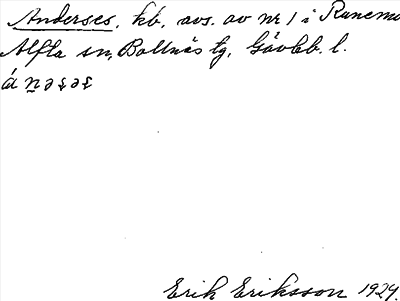 Anderses, kb, avs. av nr 1 i Runemo
Alfta sn, Bollnäs tg, Gävleb. l.
Erik Eriksson 1929.